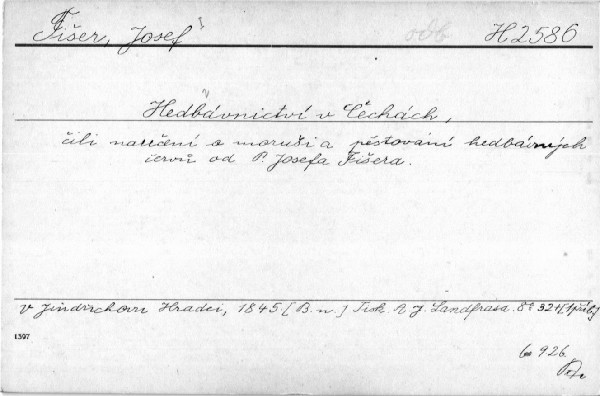 Fišer, Josef H2586
Hedbávnictví v Čechách,
čili naučení o moruši a pěstování hedbávných
červů od P. Josefa Fišera.
v Jindřichovu Hradci, 1845 [B. n.] Tisk A J. Landfrasa. 8° 32+[1příl.]
1397
926